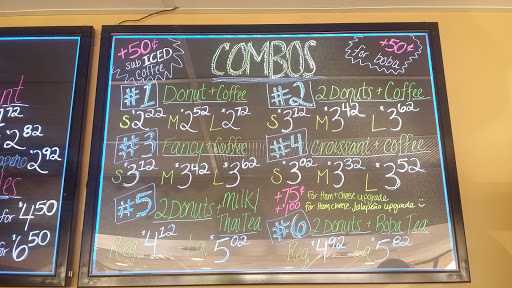 +50¢
sub ICED
coffee
COMBOS
+50¢
for boba
#1 Donut + Coffee
S $2.22 M $2.52 L $2.72
#2 2 Donuts + Coffee
S $3.12 M $3.42 L $3.62
#3 Fancy + Coffee
S $3.12 M $3.42 L $3.62
#4 Croissant + Coffee
S $3.02 M $3.32 L $3.52
+75¢ for Ham + Cheese upgrade
+$1.00 for Ham, cheese, Jalapeño upgrade
#5 2 Donuts + Milk/
Thai Tea
Reg. $4.12 Lg $5.02
#6 2 Donuts + Boba Tea
Reg. $4.92 Lg $5.82
2.82
2.92
for $4.50
for $6.50